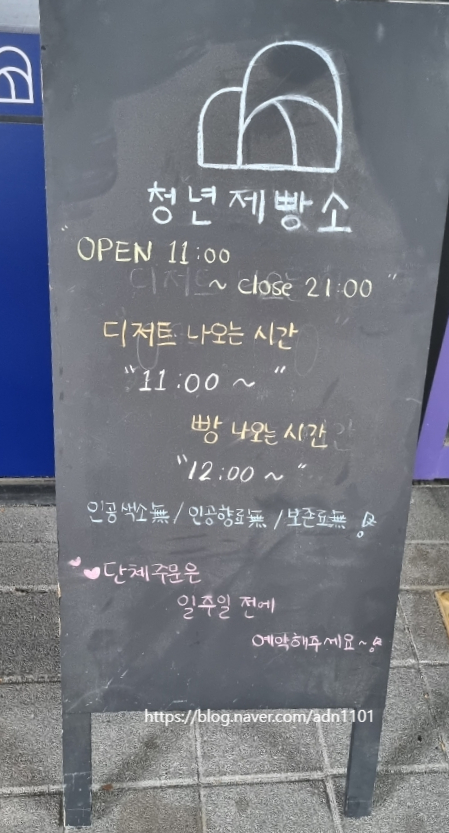 청년제빵소
"OPEN 11:00
~ close 21:00"
디저트 나오는 시간
"11:00 ~ "
빵 나오는 시간
"12:00 ~ "
인공색소無 / 인공향료無 / 보존료無!
단체주문은
일주일 전에
예약해주세요~!
https://blog.naver.com/adn1101